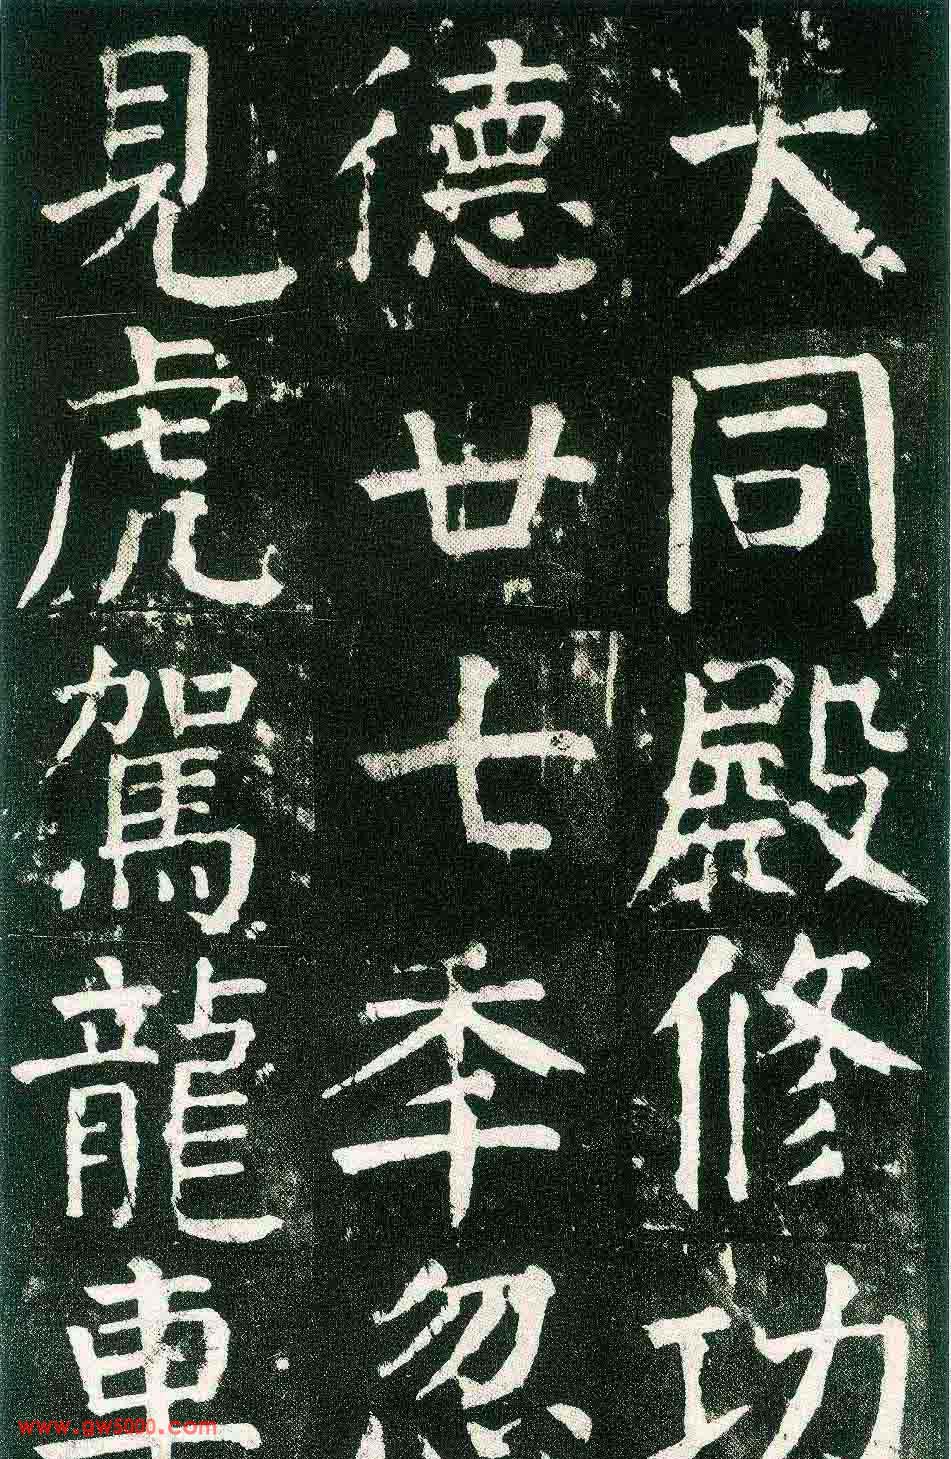 大同殿修功
德廿七秊忽
見虎駕龍車
www.gw5000.com